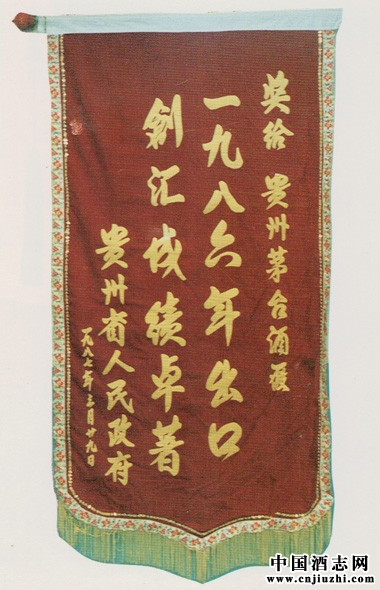 奖给 貴州茅台酒
一九八六年出口
創汇成績卓著
貴州省人民政府
一九八七年三月廿九日
中国酒志网
www.cnjiuzhi.com